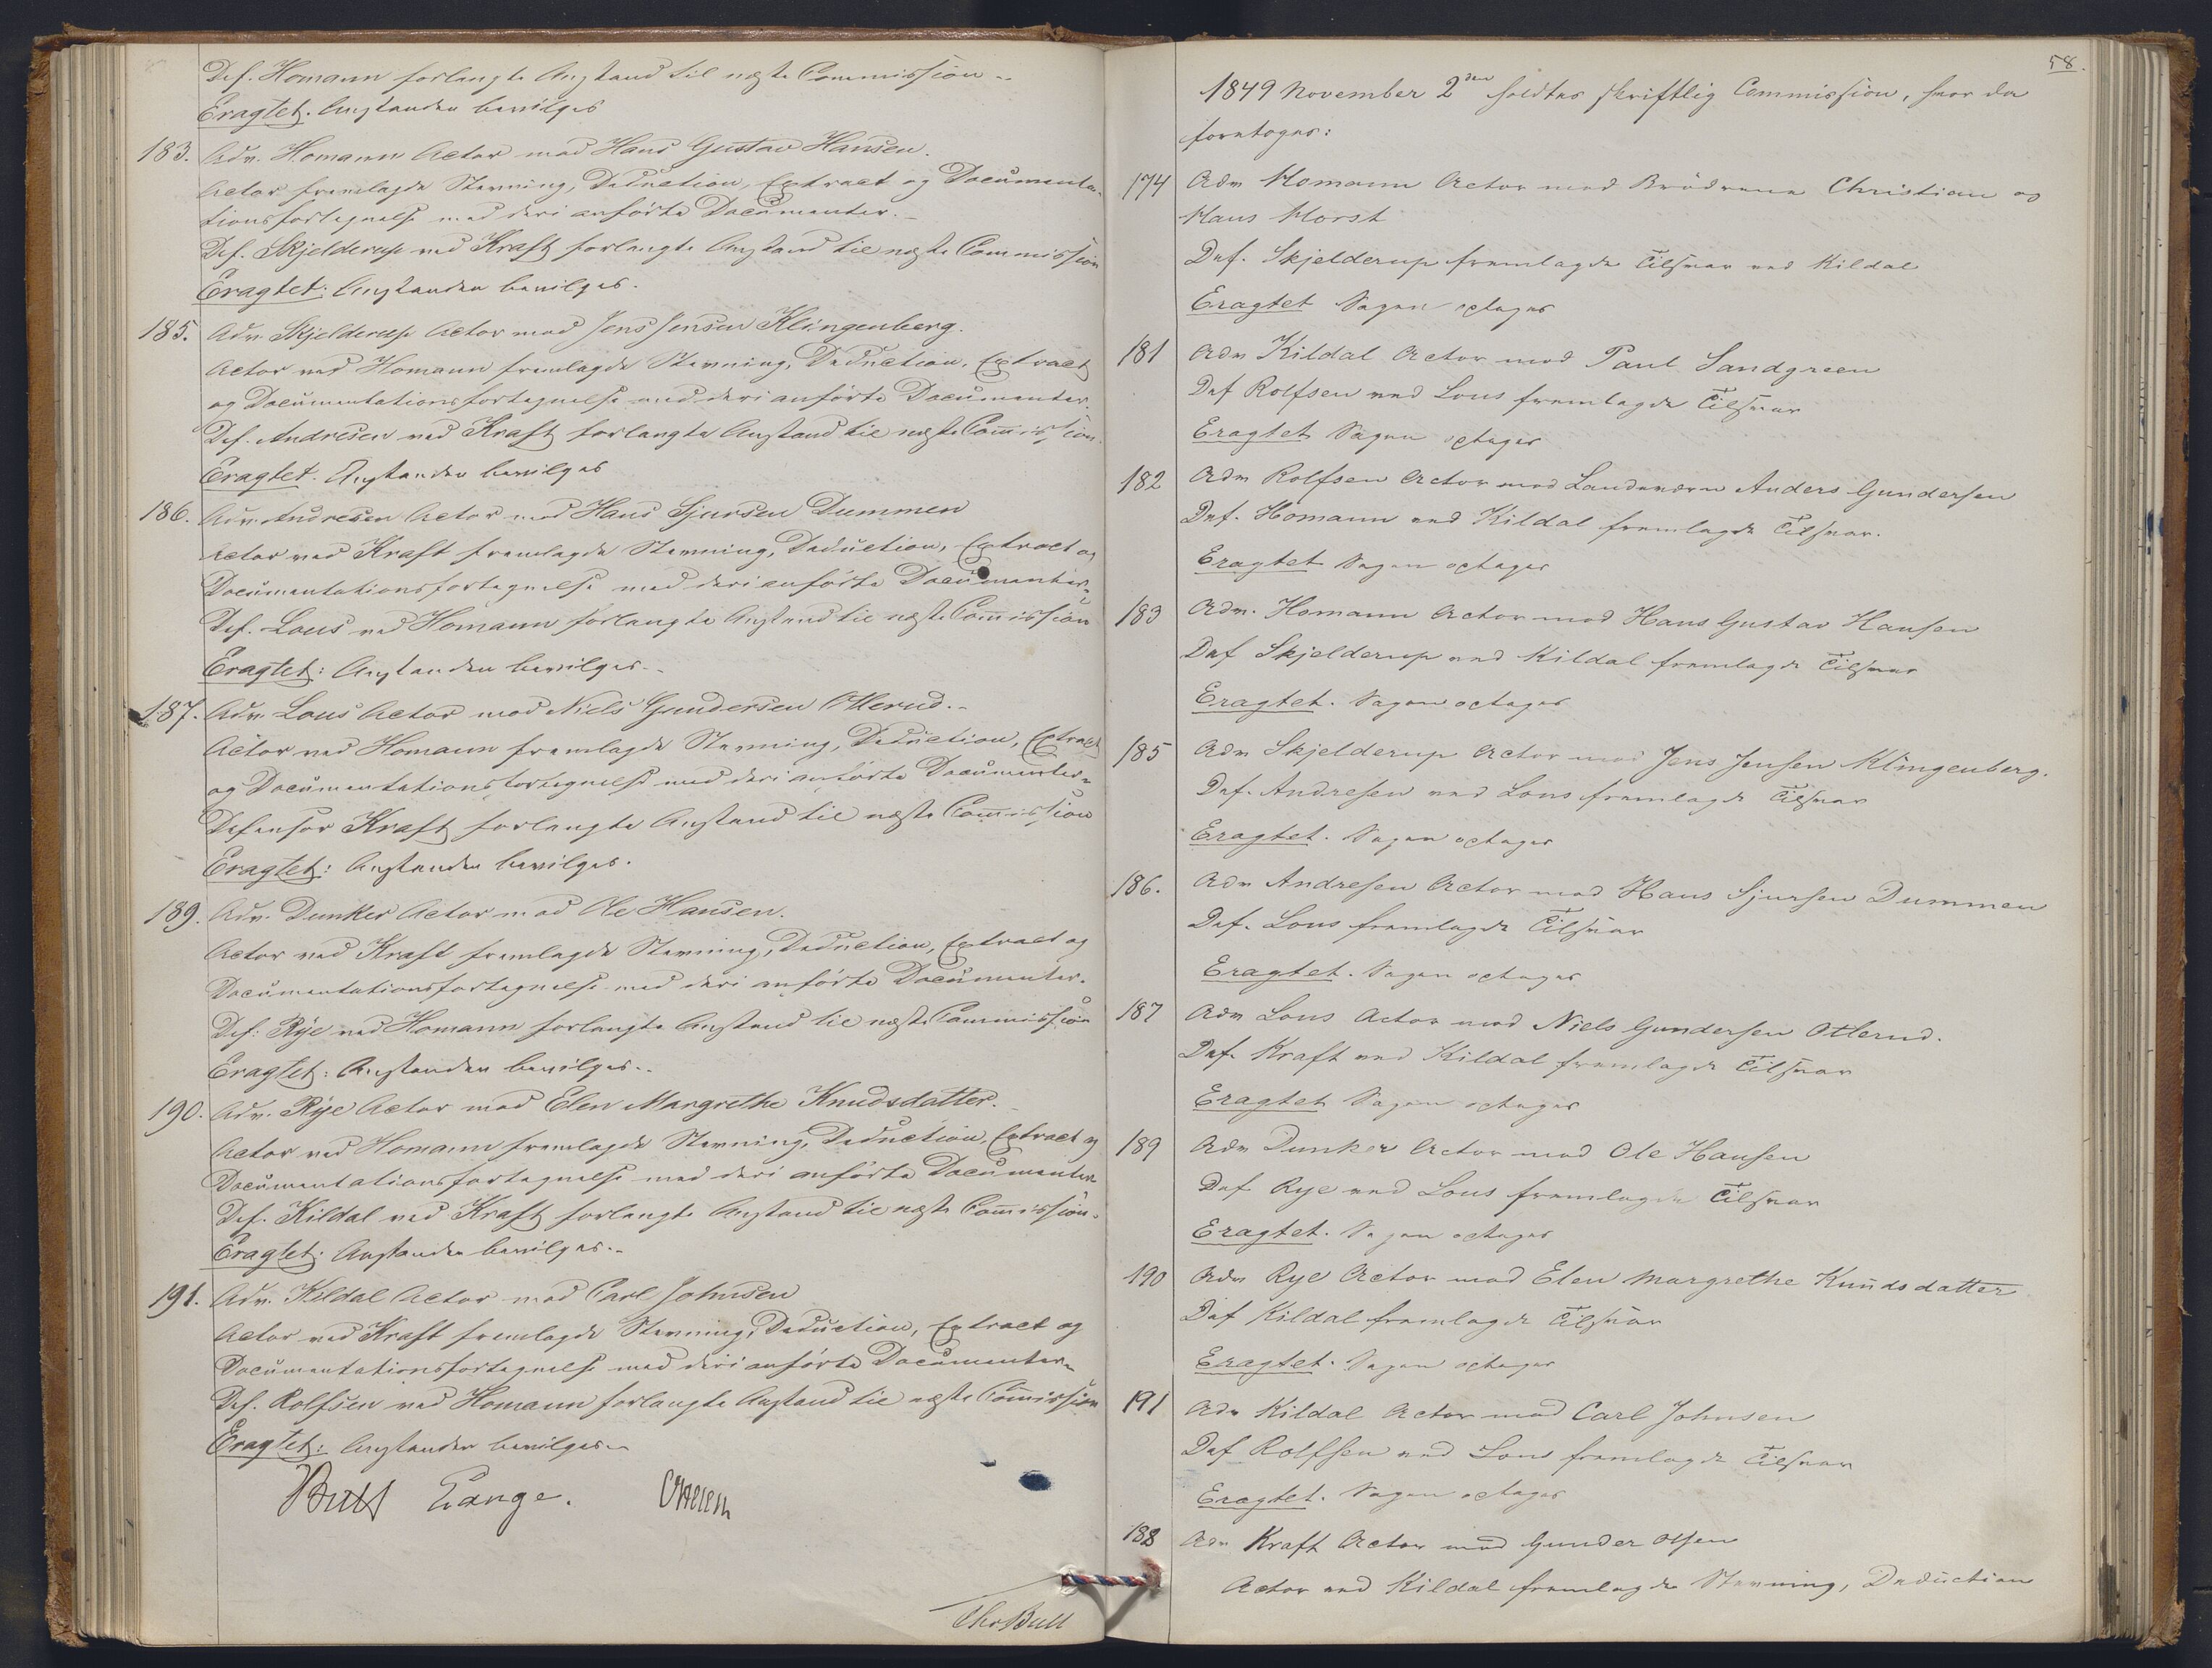 Def. Homann forlangte Anstand til næste Commission --
Eragtet. Anstanden bevilges
183. Adv. Homann Actor mod Hans Gustav Hansen.
Actor fremlagde Stevning, Deduction, Extract og Documenta-
tionsfortegnelse med deri anførte Documenter. -
Def. Skjelderup ved Kraft forlangte Anstand til næste Commission
Eragtet: Anstanden bevilges.
185. Adv. Skjelderup Actor mod Jens Jensen Klingenberg.
Actor ved Homann fremlagde Stevning, Deduction, Extract
og Documentationsfortegnelse med deri anførte Documenter.
Def. Andresen ved Kraft forlangte Anstand til næste Com̄ission.
Eragtet. Anstanden bevilges
186. Adv. Andresen Actor mod Hans Sjursen Dummen
Actor ved Kraft fremlagde Stevning, Deduction, Extract og
Documentationsfortegnelse med deri anførte Documenter.
Def. Lous ved Homann forlangte Anstand til næste Com̄ission
Eragtet: Anstanden bevilges. -
187. Adv. Lous Actor mod Niels Gundersen Otterud. -
Actor ved Homann fremlagde Stevning, Deduction, Extract
og Documentationsfortegnelse med deri anførte Documenter.
Defensor Kraft forlangte Anstand til næste Com̄ission
Eragtet: Anstanden bevilges.
189. Adv. Dunker Actor mod Ole Hansen.
Actor ved Kraft fremlagde Stevning, Deduction, Extract og
Documentationsfortegnelse med deri anførte Documenter.
Def: Rye ved Homann forlangte Anstand til næste Commission
Eragtet: Anstanden bevilges. -
190. Adv. Rye Actor mod Elen Margrethe Knudsdatter. -
Actor ved Homann fremlagde Stevning, Deduction, Extract og
Documentationsfortegnelse med deri anførte Documenter
Def. Kildal ved Kraft forlangte Anstand til næste Com̄ission.
Eragtet: Anstanden bevilges. -
191. Adv. Kildal Actor mod Carl Johnsen
Actor ved Kraft fremlagde Stevning, Deduction, Extract og
Documentationsfortegnelse med deri anførte Documenter.
Def. Rolfsen ved Homann forlangte Anstand til næste Com̄ission
Eragtet: Anstanden bevilges. -
Bull Lange.
Tho Bull
58.
1849 November 2den holdtes skriftlig Commission, hvor da
foretoges:
174 Adv Homann Actor mod Brødrene Christian og
Hans Horst
Def. Skjelderup fremlagde Tilsvar ved Kildal
Eragtet Sagen optages
181 Adv Kildal Actor mod Paul Sandgreen
Def Rolfsen ved Lous fremlagde Tilsvar
Eragtet Sagen optages
182 Adv Rolfsen Actor mod Landeværn Anders Gundersen
Def. Homann ved Kildal fremlagde Tilsvar.
Eragtet Sagen optages
183 Adv. Homann Actor mod Hans Gustav Hansen
Def Skjelderup ved Kildal fremlagde Tilsvar
Eragtet. Sagen optages
185 Adv Skjelderup Actor mod Jens Jensen Klingenberg.
Def. Andresen ved Lous fremlagde Tilsvar
Eragtet. Sagen optages
186. Adv Andresen Actor mod Hans Sjursen Dummen
Def. Lous fremlagde Tilsvar
Eragtet. Sagen optages
187 Adv Lous Actor mod Niels Gundersen Otterud.
Def. Kraft ved Kildal fremlagde Tilsvar
Eragtet Sagen optages
189 Adv Dunker Actor mod Ole Hansen
Def Rye ved Lous fremlagde Tilsvar
Eragtet. Sagen optages
190 Adv Rye Actor mod Elen Margrethe Knudsdatter
Def Kildal fremlagde Tilsvar
Eragtet. Sagen optages
191 Adv Kildal Actor mod Carl Johnsen
Def Rolfsen ved Lous fremlagde Tilsvar
Eragtet. Sagen optages
188 Adv Kraft Actor mod Gunder Olsen
Actor ved Kildal fremlagde Stevning, Deduction